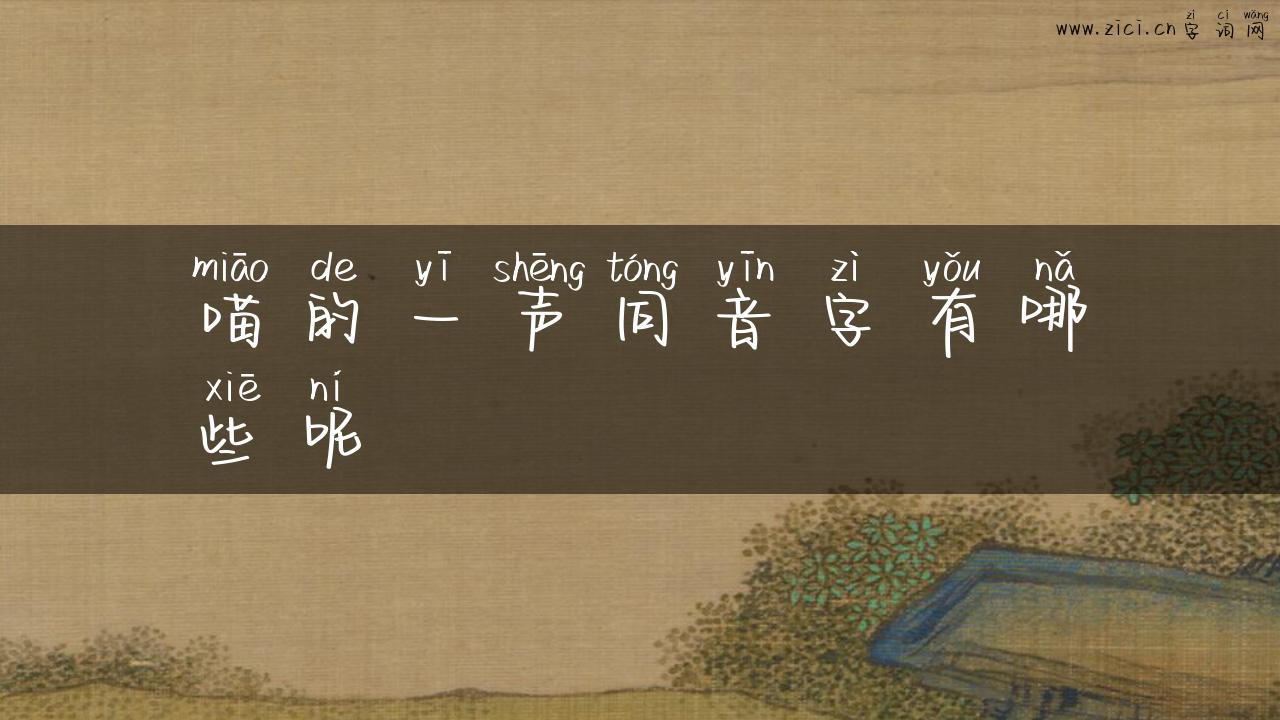 zì cí wǎng
www.zici.cn字词网
miāo de yī shēng tóng yīn zì yǒu nǎ
喵的一声同音字有哪
xiē ní
些呢